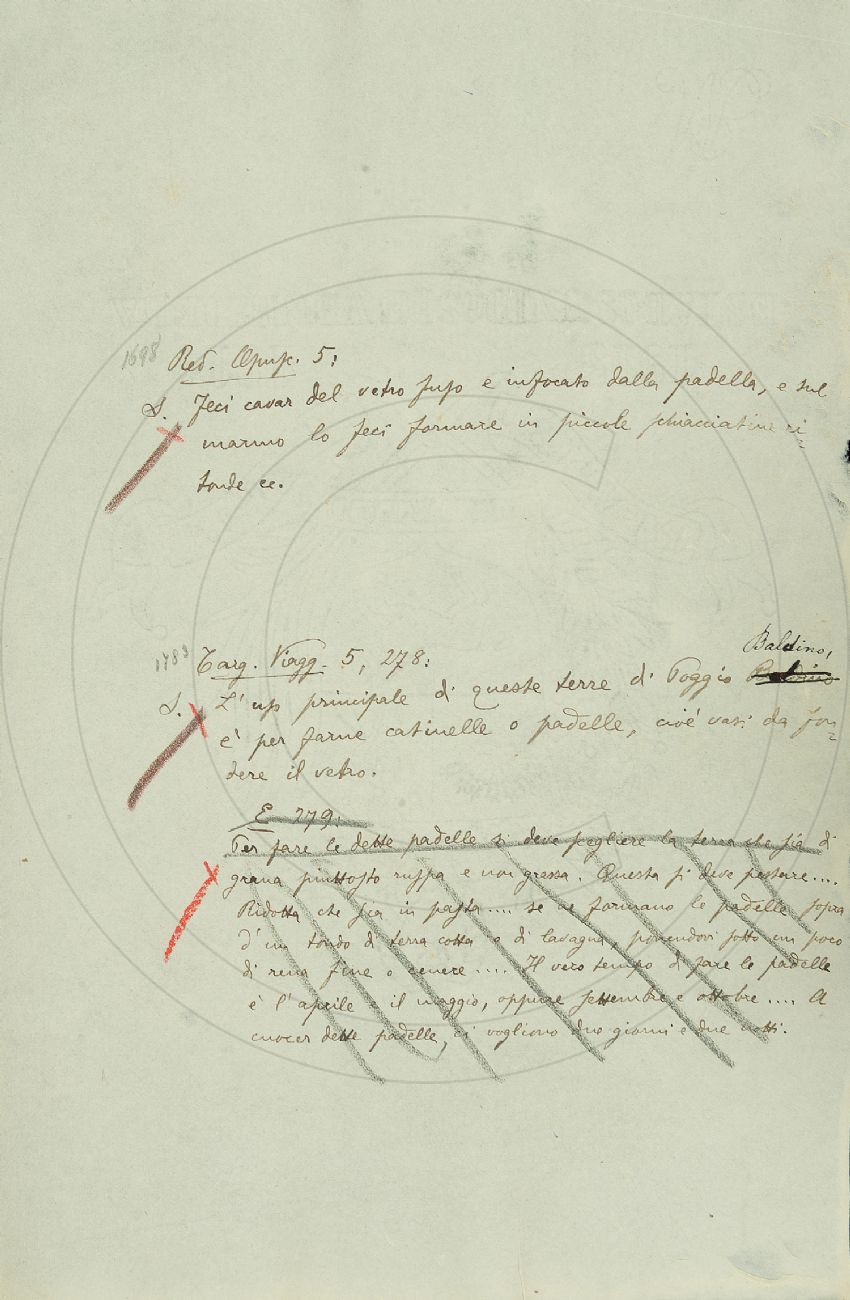 1698 Red. Opusc. 5:
S. Feci cavar del vetro fuso e infocato dalla padella, e sul
marmo lo feci formare in piccole schiacciatine ri=
tonde ec.
1783 Targ. Viagg. 5, 278:
Baldino,
S. L'uso principale di queste terre di Poggio Baldino
è per farne catinelle o padelle, cioè vasi da fon=
dere il vetro.
E 279:
Per fare le dette padelle si deve scegliere la terra che sia di
grana piuttosto ruspa e non grassa. Questa si deve pestare....
Ridotta che sia in pasta.... se ne formano le padelle sopra
d'un tondo di terra cotta o di lavagna, ponendovi sotto un poco
di rena fine o cenere.... Il vero tempo di fare le padelle
è l'aprile e il maggio, oppure settembre e ottobre.... A
cuocer dette padelle, ci vogliono due giorni e due notti.